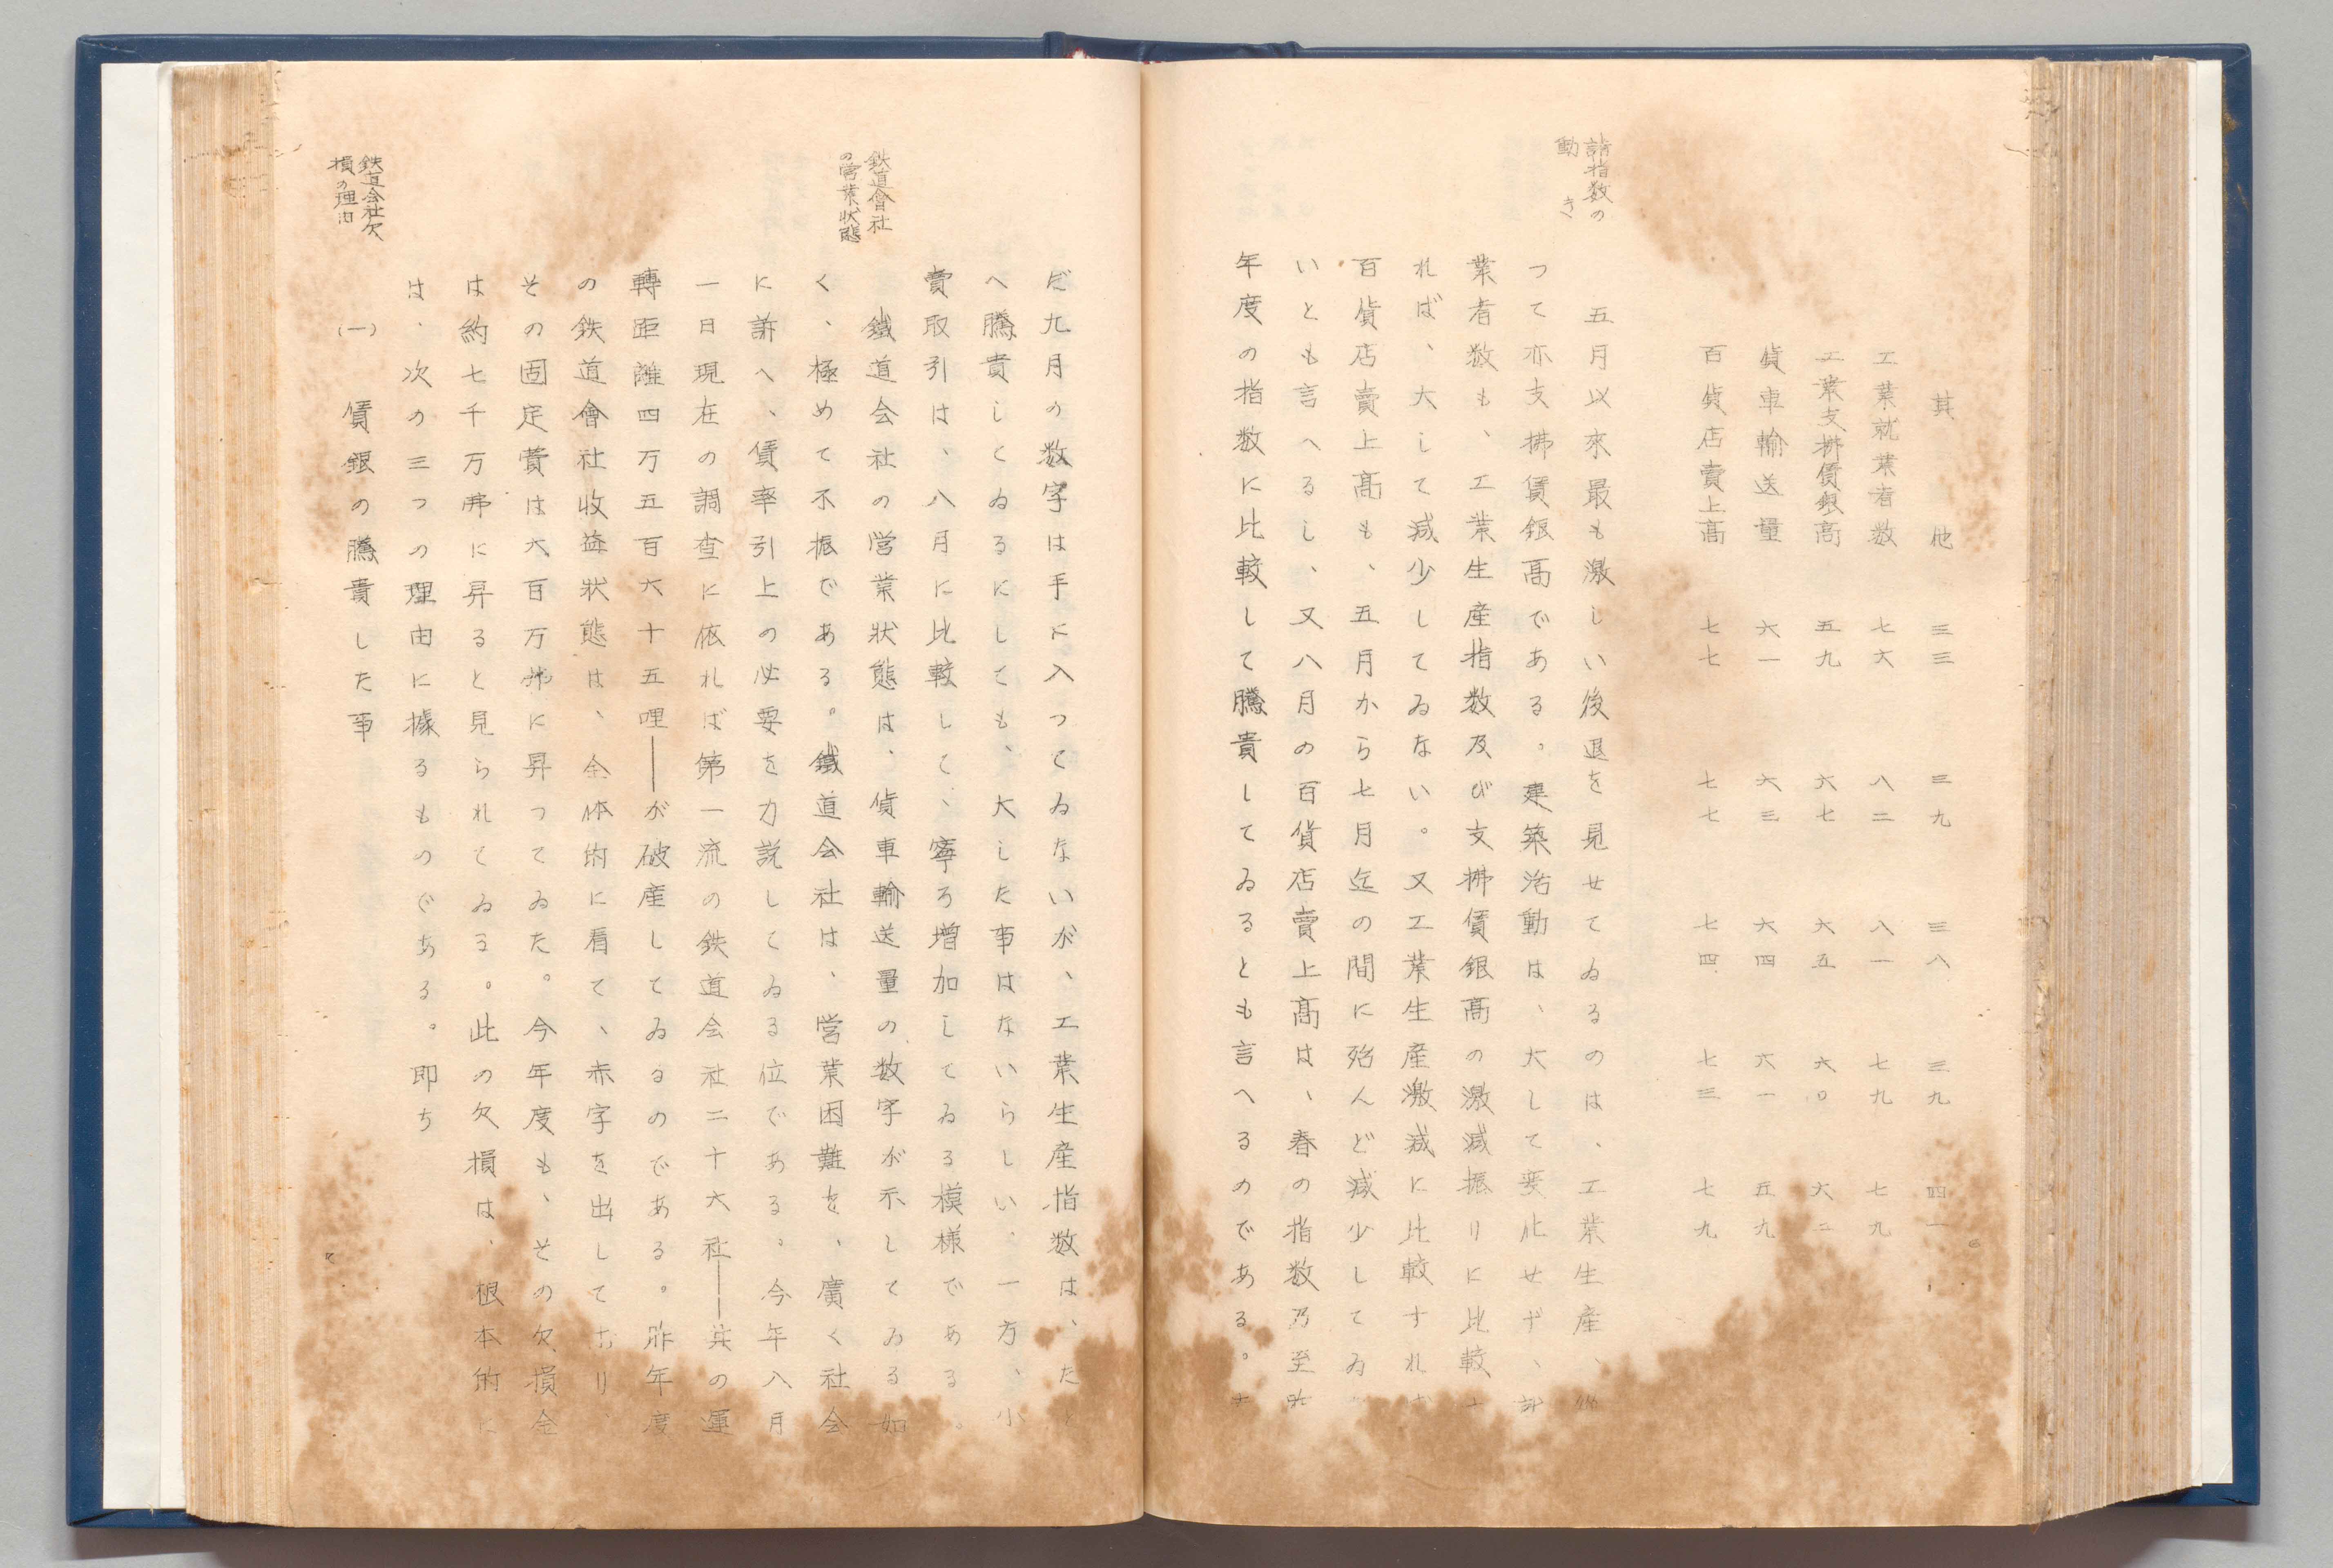 其他　三三　三九　三八　三九　四一
工業就業者数　七六　八二　八一　七九　七九
工業支拂賃銀高　五九　六七　六五　六〇　六二
貨車輸送量　六一　六三　六四　六一　五九
百貨店賣上高　七七　七七　七四　七三　七九
諸指数の
動き
五月以來最も激しい後退を見せてゐるのは、工業生産、
つて亦支拂賃銀高である。建築活動は、大して変化せず、
業者数も、工業生産指数及び支拂賃銀高の激減振りに比較
れば、大して減少してゐない。又工業生産激減に比較すれ
百貨店賣上高も、五月から七月迄の間に殆んど減少してゐ
いとも言へるし、又八月の百貨店賣上高は、春の指数乃至昨
年度の指数に比較して騰貴してゐるとも言へるのである。
だ九月の数字は手に入つてゐないが、工業生産指数は、た
へ騰貴してゐるにしても、大した事はないらしい、一方、小
賣取引は、八月に比較して、寧ろ増加してゐる模様である。
鉄道會社
の営業狀態
鐵道会社の営業狀態は、貨車輸送量の数字が示してゐる如
く、極めて不振である。鐵道会社は、営業困難を、廣く社会
に訴へ、賃率引上の必要を力説してゐる位である。今年八月
一日現在の調査に依れば第一流の鉄道会社二十六社――其の運
轉距離四万五百六十五哩――が破産してゐるのである。昨年度
の鉄道會社收益狀態は、全体的に看て、赤字を出しており、
その固定費は六百万弗に昇つてゐた。今年度も、その欠損金
は約七千万弗に昇ると見られてゐる。此の欠損は、根本的に
は、次の三つの理由に據るものである。即ち
鉄道会社欠
損の理由
(一)　賃銀の騰貴した事